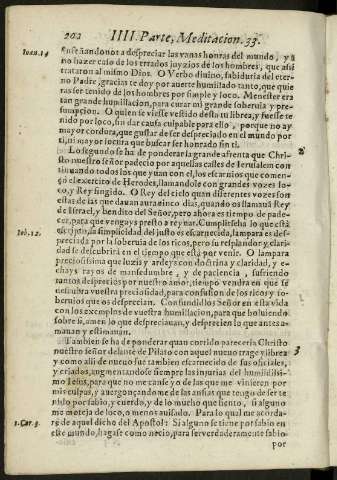 202 IIII. Parte, Meditacion. 33.
Ioan. 14
enseñandonos a despreciar las vanas honras del mundo, y a
no hazer caso de los errados juyzios de los hombres, que assi
trataron al mismo Dios. O Verbo diuino, sabiduria del eter-
no Padre, gracias te doy por auerte humillado tanto, que quie
ras ser tenido de los hombres por simple y loco. Menester era
tan grande humillacion, para curar mi grande soberuia y pre-
sumpcion. O quien se viesse vestido desta tu librea, y fuesse te
nido por loco, sin dar causa culpable para ello, porque no ay
mayor cordura, que gustar de ser despreciado en el mundo por
ti, ni mayor locura que buscar ser honrado sin ti.
Lo segundo se ha de ponderar la grande afrenta que Chri-
2
sto nuestro señor padecio por aquellas calles de Ierusalem con
tinuando todos los que yuan con el, los escarnios que comen-
çò el exercito de Herodes, llamandole con grandes vozes lo-
co, y Rey fingido. O Rey del cielo quan diferentes vozes son
estas de las que dauan aura cinco dias, quando os llamauã Rey
de Israel, y bendito del Señor, pero ahora es tiempo de pade-
cer, para que vengays presto a reynar. Cumplase ha lo que està
Iob. 12.
escripto, la simplicidad del justo es escarnecida, lampara es des-
preciada por la soberuia de los ricos, pero su resplandor y clari-
dad se descubrirà en el tiempo que està por venir. O lampara
preciosissima que luzis y ardeys con doctrina y claridad, y e-
chays rayos de mansedumbre, y de paciencia, sufriendo
tantos desprecios por nuestro amor, tiempo vendra en que se
descubra vuestra preciosidad, para confusion de los ricos y so-
beruios que os desprecian. Confundildos Señor en esta vida
con los exemplos de vuestra humillacion, para que boluiendo
sobre si, amen lo que despreciauan, y desprecien lo que antes a-
mauan y estimauan.
Tambien se ha de ponderar quan corrido pareceria Christo
nuestro señor delante de Pilato con aquel nueuo trage y librea
3
y como alli de nueuo fue tambien escarnecido de sus oficiales,
y criados, augmentandose siempre las injurias del humildissi-
mo Iesus, para que no me canse yo de las que me vinieren por
mis culpas, y auergonçandome de las ansias que tengo de ser te
nido por sabio, y cuerdo, y de lo mucho que siento, si alguno
me moteja de loco, o menos auisado. Para lo qual me acorda-
1. Cor. 3.
rè de aquel dicho del Apostol: Si alguno se tiene por sabio en
este mundo, hagase como necio, para ser verdaderamente sabio
por